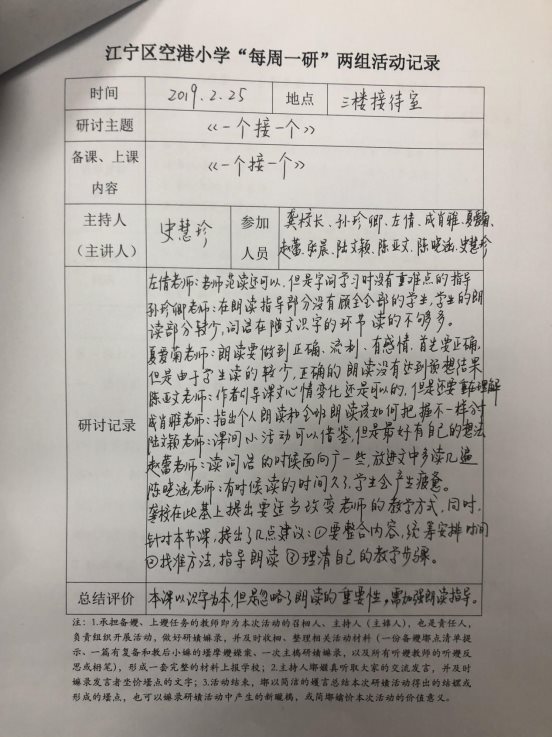 江宁区空港小学“每周一研”两组活动记录
时间 2019.2.25 地点 三楼接待室
研讨主题 《一个接一个》
备课、上课
内容 《一个接一个》
主持人
（主讲人） 史慧珍
参加
人员
龚校长、孙珍卿、左倩、成肖雅、夏爱菊、
赵蕾、张晨、陆文颖、陈亚文、陈晓涵、史慧珍
研讨记录
左倩老师：老师范读还可以，但是字词学习时没有重难点的指导
孙珍卿老师：在朗读指导部分没有顾全全部的学生，学生的朗
读部分较少，词语在随文识字的环节读的不够多。
夏爱菊老师：朗读要做到正确、流利、有感情，首先要正确，
但是由于学生读的较少，正确的朗读没有达到预想结果
陈亚文老师：作者引导课文心情变化还是可以的，但是还要重在理解
成肖雅老师：指出个人朗读和全班朗读该如何把握不一样对
陆文颖老师：课间小活动可以借鉴，但是最好有自己的想法
赵蕾老师：读词语的时候面向广一些，放进文中多读几遍
陈晓涵老师：有时候读的时间久了，学生会产生疲惫。
龚校在此基上提出要适当改变老师的教学方式，同时，
针对本节课，提出了几点建议：①要整合内容，统筹安排时间
②找准方法，指导朗读 ③理清自己的教学步骤。
总结评价 本课以识字为本，但是忽略了朗读的重要性，需加强朗读指导。
注：1.承担备
上
任务的教师即为本次活动的召
人、主持人（主
人），也是责任人，
负责组织开展活动，做好研
录，并及时收
、整理相关活动材料（一份备
点清单提
示、一篇有复备和教后小
的
、一次主
研
录，以及所有听
教师的听
反
思或
笔），形成一套完整的材料上报学校；2.主持人
真听取大家的交流发言，并及时
录发言者
价
点的文字；3.活动结束，
以简洁的
言总结本次研
活动得出的结
或
形成的
点，也可以
录研
活动中产生的新
，或简
价本次活动的价值意义。